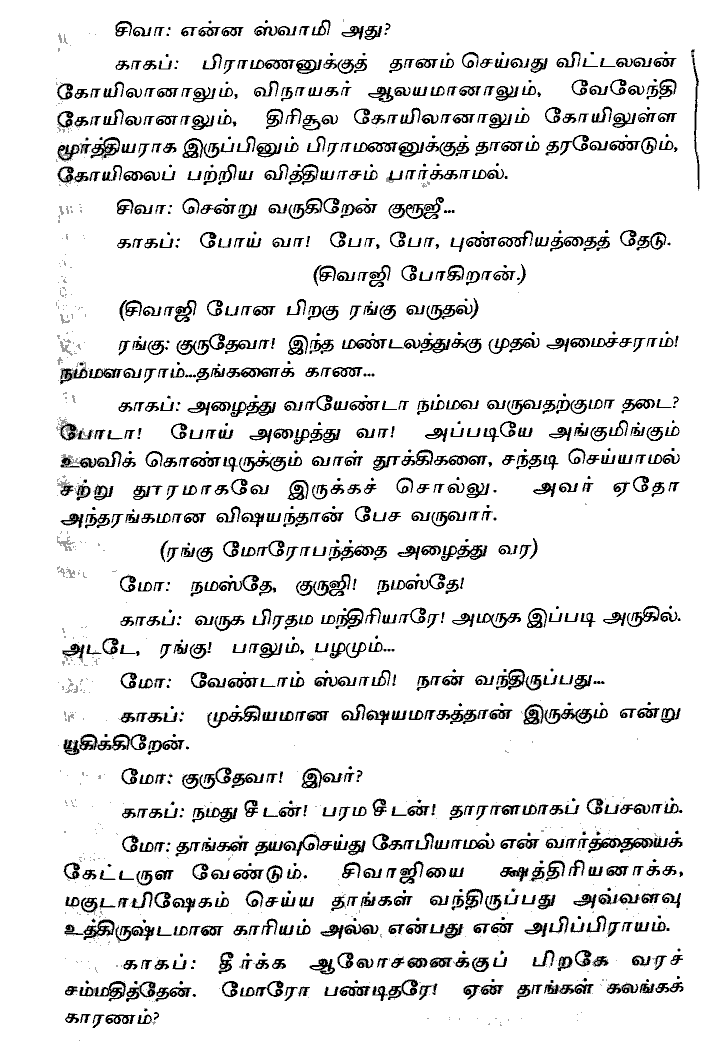 சிவா: என்ன ஸ்வாமி அது?
காகப்: பிராமணனுக்குத் தானம் செய்வது விட்டலவன்
கோயிலானாலும், விநாயகர் ஆலயமானாலும், வேலேந்தி
கோயிலானாலும், திரிசூல கோயிலானாலும் கோயிலுள்ள
மூர்த்தியராக இருப்பினும் பிராமணனுக்குத் தானம் தரவேண்டும்,
கோயிலைப் பற்றிய வித்தியாசம் பார்க்காமல்.
சிவா: சென்று வருகிறேன் குரூஜீ...
காகப்: போய் வா! போ, போ, புண்ணியத்தைத் தேடு.
(சிவாஜி போகிறான்.)
(சிவாஜி போன பிறகு ரங்கு வருதல்)
ரங்கு: குருதேவா! இந்த மண்டலத்துக்கு முதல் அமைச்சராம்!
நம்மளவராம்...தங்களைக் காண...
காகப்: அழைத்து வாயேண்டா நம்மவ வருவதற்குமா தடை?
போடா! போய் அழைத்து வா! அப்படியே அங்குமிங்கும்
உலவிக் கொண்டிருக்கும் வாள் தூக்கிகளை, சந்தடி செய்யாமல்
சற்று தூரமாகவே இருக்கச் சொல்லு. அவர் ஏதோ
அந்தரங்கமான விஷயந்தான் பேச வருவார்.
(ரங்கு மோரோபந்த்தை அழைத்து வர)
மோ: நமஸ்தே, குருஜி! நமஸ்தே!
காகப்: வருக பிரதம மந்திரியாரே! அமருக இப்படி அருகில்.
அடடே, ரங்கு! பாலும், பழமும்...
மோ: வேண்டாம் ஸ்வாமி! நான் வந்திருப்பது...
காகப்: முக்கியமான விஷயமாகத்தான் இருக்கும் என்று
யூகிக்கிறேன்.
மோ: குருதேவா! இவர்?
காகப்: நமது சீடன்! பரம சீடன்! தாராளமாகப் பேசலாம்.
மோ: தாங்கள் தயவுசெய்து கோபியாமல் என் வார்த்தையைக்
கேட்டருள வேண்டும். சிவாஜியை க்ஷத்திரியனாக்க,
மகுடாபிஷேகம் செய்ய தாங்கள் வந்திருப்பது அவ்வளவு
உத்கிருஷ்டமான காரியம் அல்ல என்பது என் அபிப்பிராயம்.
காகப்: தீர்க்க ஆலோசனைக்குப் பிறகே வரச்
சம்மதித்தேன். மோரோ பண்டிதரே! ஏன் தாங்கள் கலங்கக்
காரணம்?